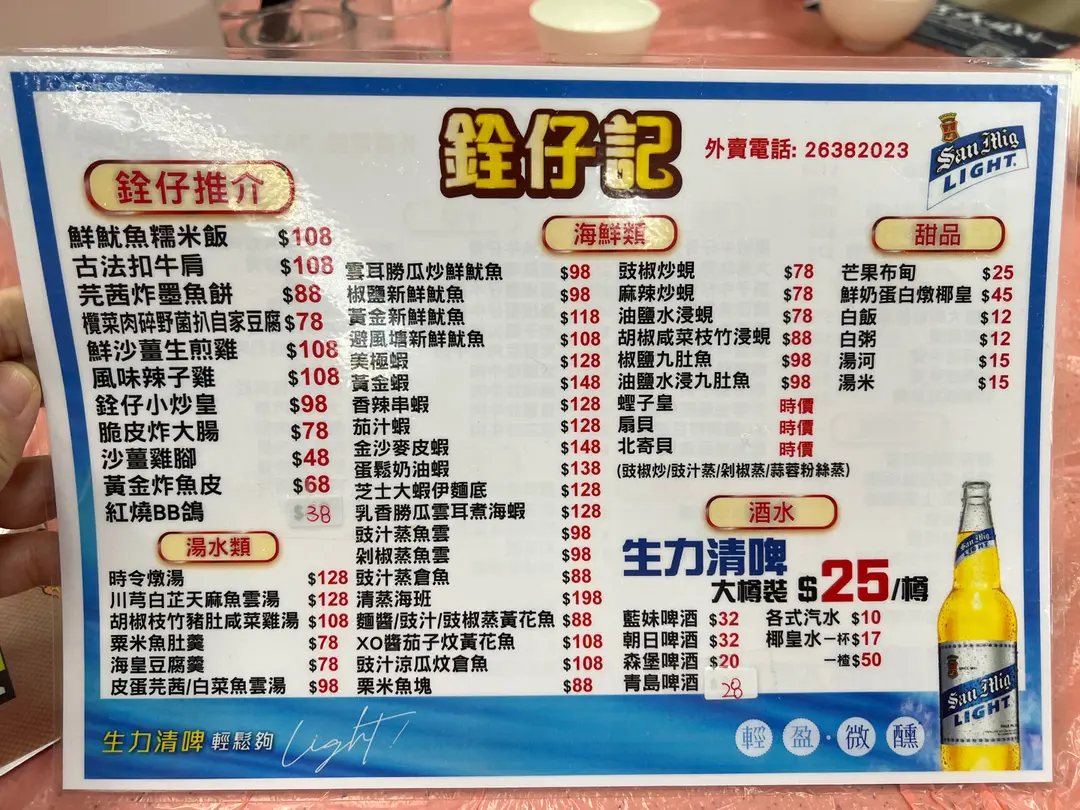 銓仔記
外賣電話: 26382023
San Mig
LIGHT.
銓仔推介
鮮魷魚糯米飯 $108
古法扣牛肩 $108
芫茜炸墨魚餅 $88
欖菜肉碎野菌扒自家豆腐 $78
鮮沙薑生煎雞 $108
風味辣子雞 $108
銓仔小炒皇 $98
脆皮炸大腸 $78
沙薑雞腳 $48
黃金炸魚皮 $68
紅燒BB鴿 $38
湯水類
時令燉湯 $128
川芎白芷天麻魚雲湯 $128
胡椒枝竹豬肚咸菜雞湯 $108
粟米魚肚羹 $78
海皇豆腐羹 $78
皮蛋芫茜/白菜魚雲湯 $98
海鮮類
雲耳勝瓜炒鮮魷魚 $98
椒鹽新鮮魷魚 $98
黃金新鮮魷魚 $118
避風塘新鮮魷魚 $108
美極蝦 $128
黃金蝦 $148
香辣串蝦 $128
茄汁蝦 $128
金沙麥皮蝦 $148
蛋鬆奶油蝦 $138
芝士大蝦伊麵底 $128
乳香勝瓜雲耳煮海蝦 $128
豉汁蒸魚雲 $98
剁椒蒸魚雲 $98
豉汁蒸倉魚 $88
清蒸海班 $198
麵醬/豉汁/豉椒蒸黃花魚 $88
XO醬茄子炆黃花魚 $108
豉汁涼瓜炆倉魚 $108
粟米魚塊 $88
豉椒炒蜆 $78
麻辣炒蜆 $78
油鹽水浸蜆 $78
胡椒咸菜枝竹浸蜆 $88
椒鹽九肚魚 $98
油鹽水浸九肚魚 $98
蟶子皇 時價
扇貝 時價
北寄貝 時價
(豉椒炒/豉汁蒸/剁椒蒸/蒜蓉粉絲蒸)
甜品
芒果布甸 $25
鮮奶蛋白燉椰皇 $45
白飯 $12
白粥 $12
湯河 $15
湯米 $15
酒水
生力清啤
大樽裝 $25/樽
藍妹啤酒 $32
朝日啤酒 $32
森堡啤酒 $20
青島啤酒 28
各式汽水 $10
椰皇水 一杯 $17
一楂 $50
San Mig
LIGHT
San Mig
LIGHT
生力清啤 輕鬆夠 Light!
輕盈·微醺